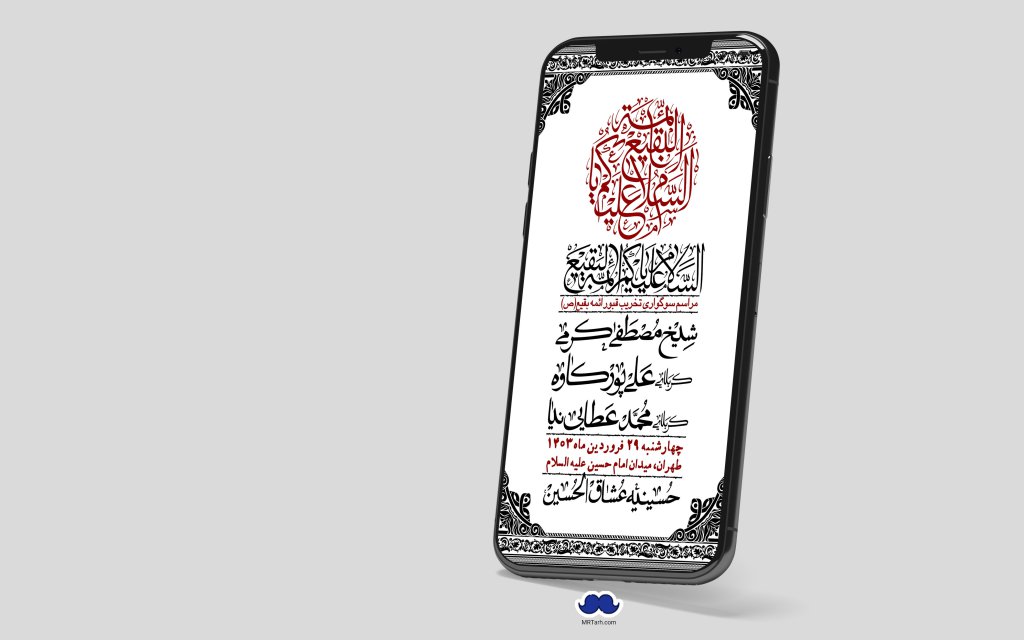 السلام علیکم یا ائمة البقیع
السلام علیکم یا ائمة البقیع
مراسم سوگواری تخریب قبور ائمه بقیع(ص)
شیخ مصطفی کرمی
کربلایی علی پورکاوه
کربلایی محمد عطایی نیا
چهارشنبه ۲۹ فروردین ماه ۱۴۰۳
طهران، میدان امام حسین علیه السلام
حسینیه عشاق الحسین
MRTarh.com